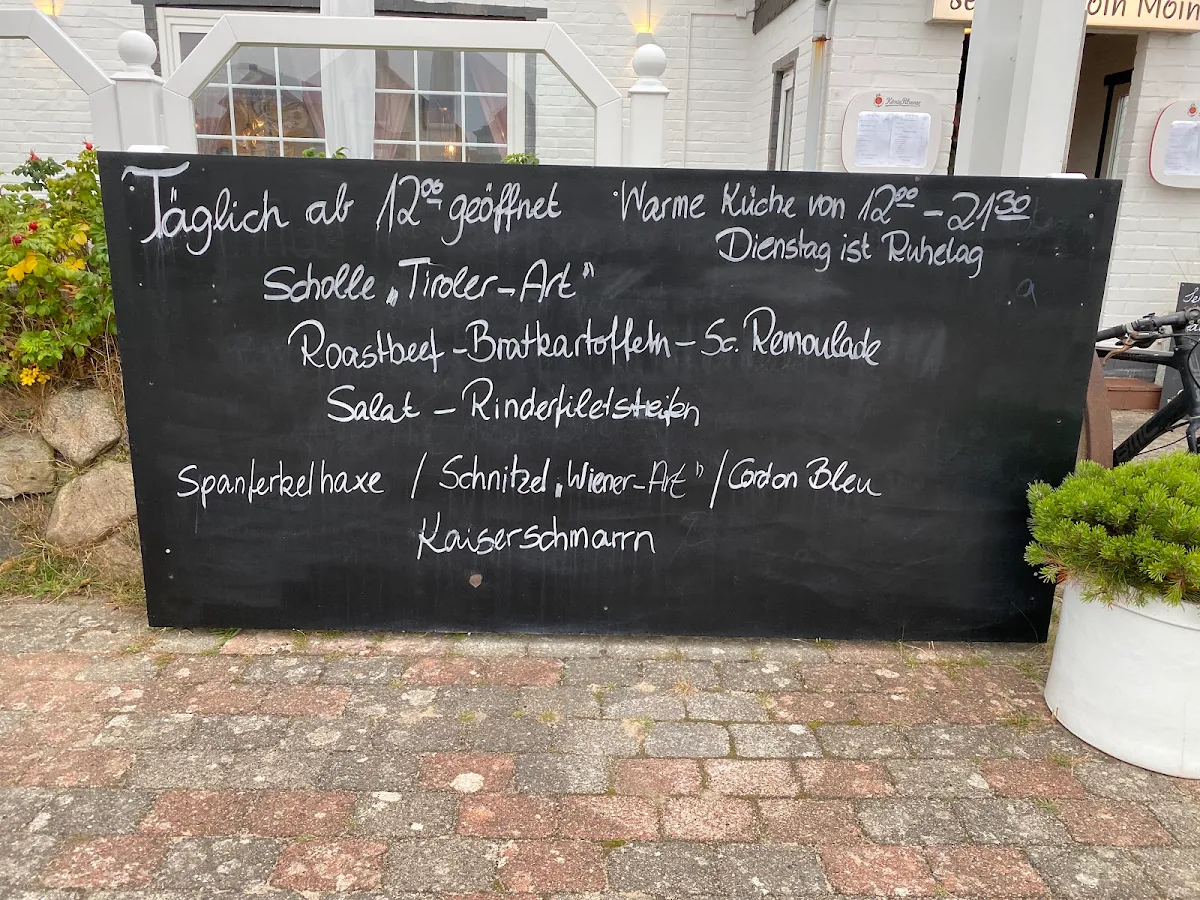 Täglich ab 12⁰⁰ geöffnet
Warme Küche von 12⁰⁰ – 21³⁰
Dienstag ist Ruhetag
Scholle „Tiroler-Art“
Roastbeef – Bratkartoffeln – Sc. Remoulade
Salat – Rinderfiletstreifen
Spanferkelhaxe / Schnitzel „Wiener-Art“ / Cordon Bleu
Kaiserschmarrn
Moin